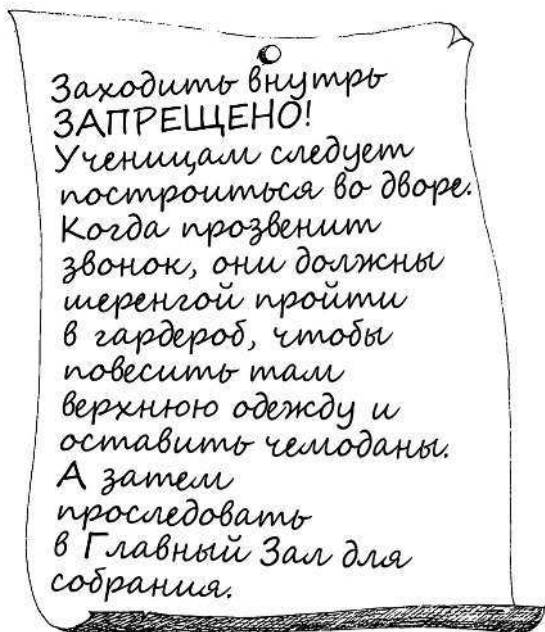 Заходить внутрь
ЗАПРЕЩЕНО!
Ученицам следует
построиться во дворе.
Когда прозвенит
звонок, они должны
шеренгой пройти
в гардероб, чтобы
повесить там
верхнюю одежду и
оставить чемоданы.
А затем
проследовать
в Главный Зал для
собрания.